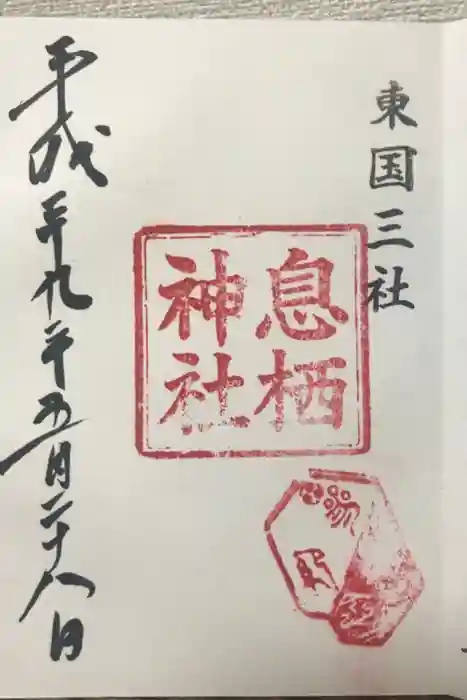 東国三社
息栖
神社
平成二十九年五月二十八日